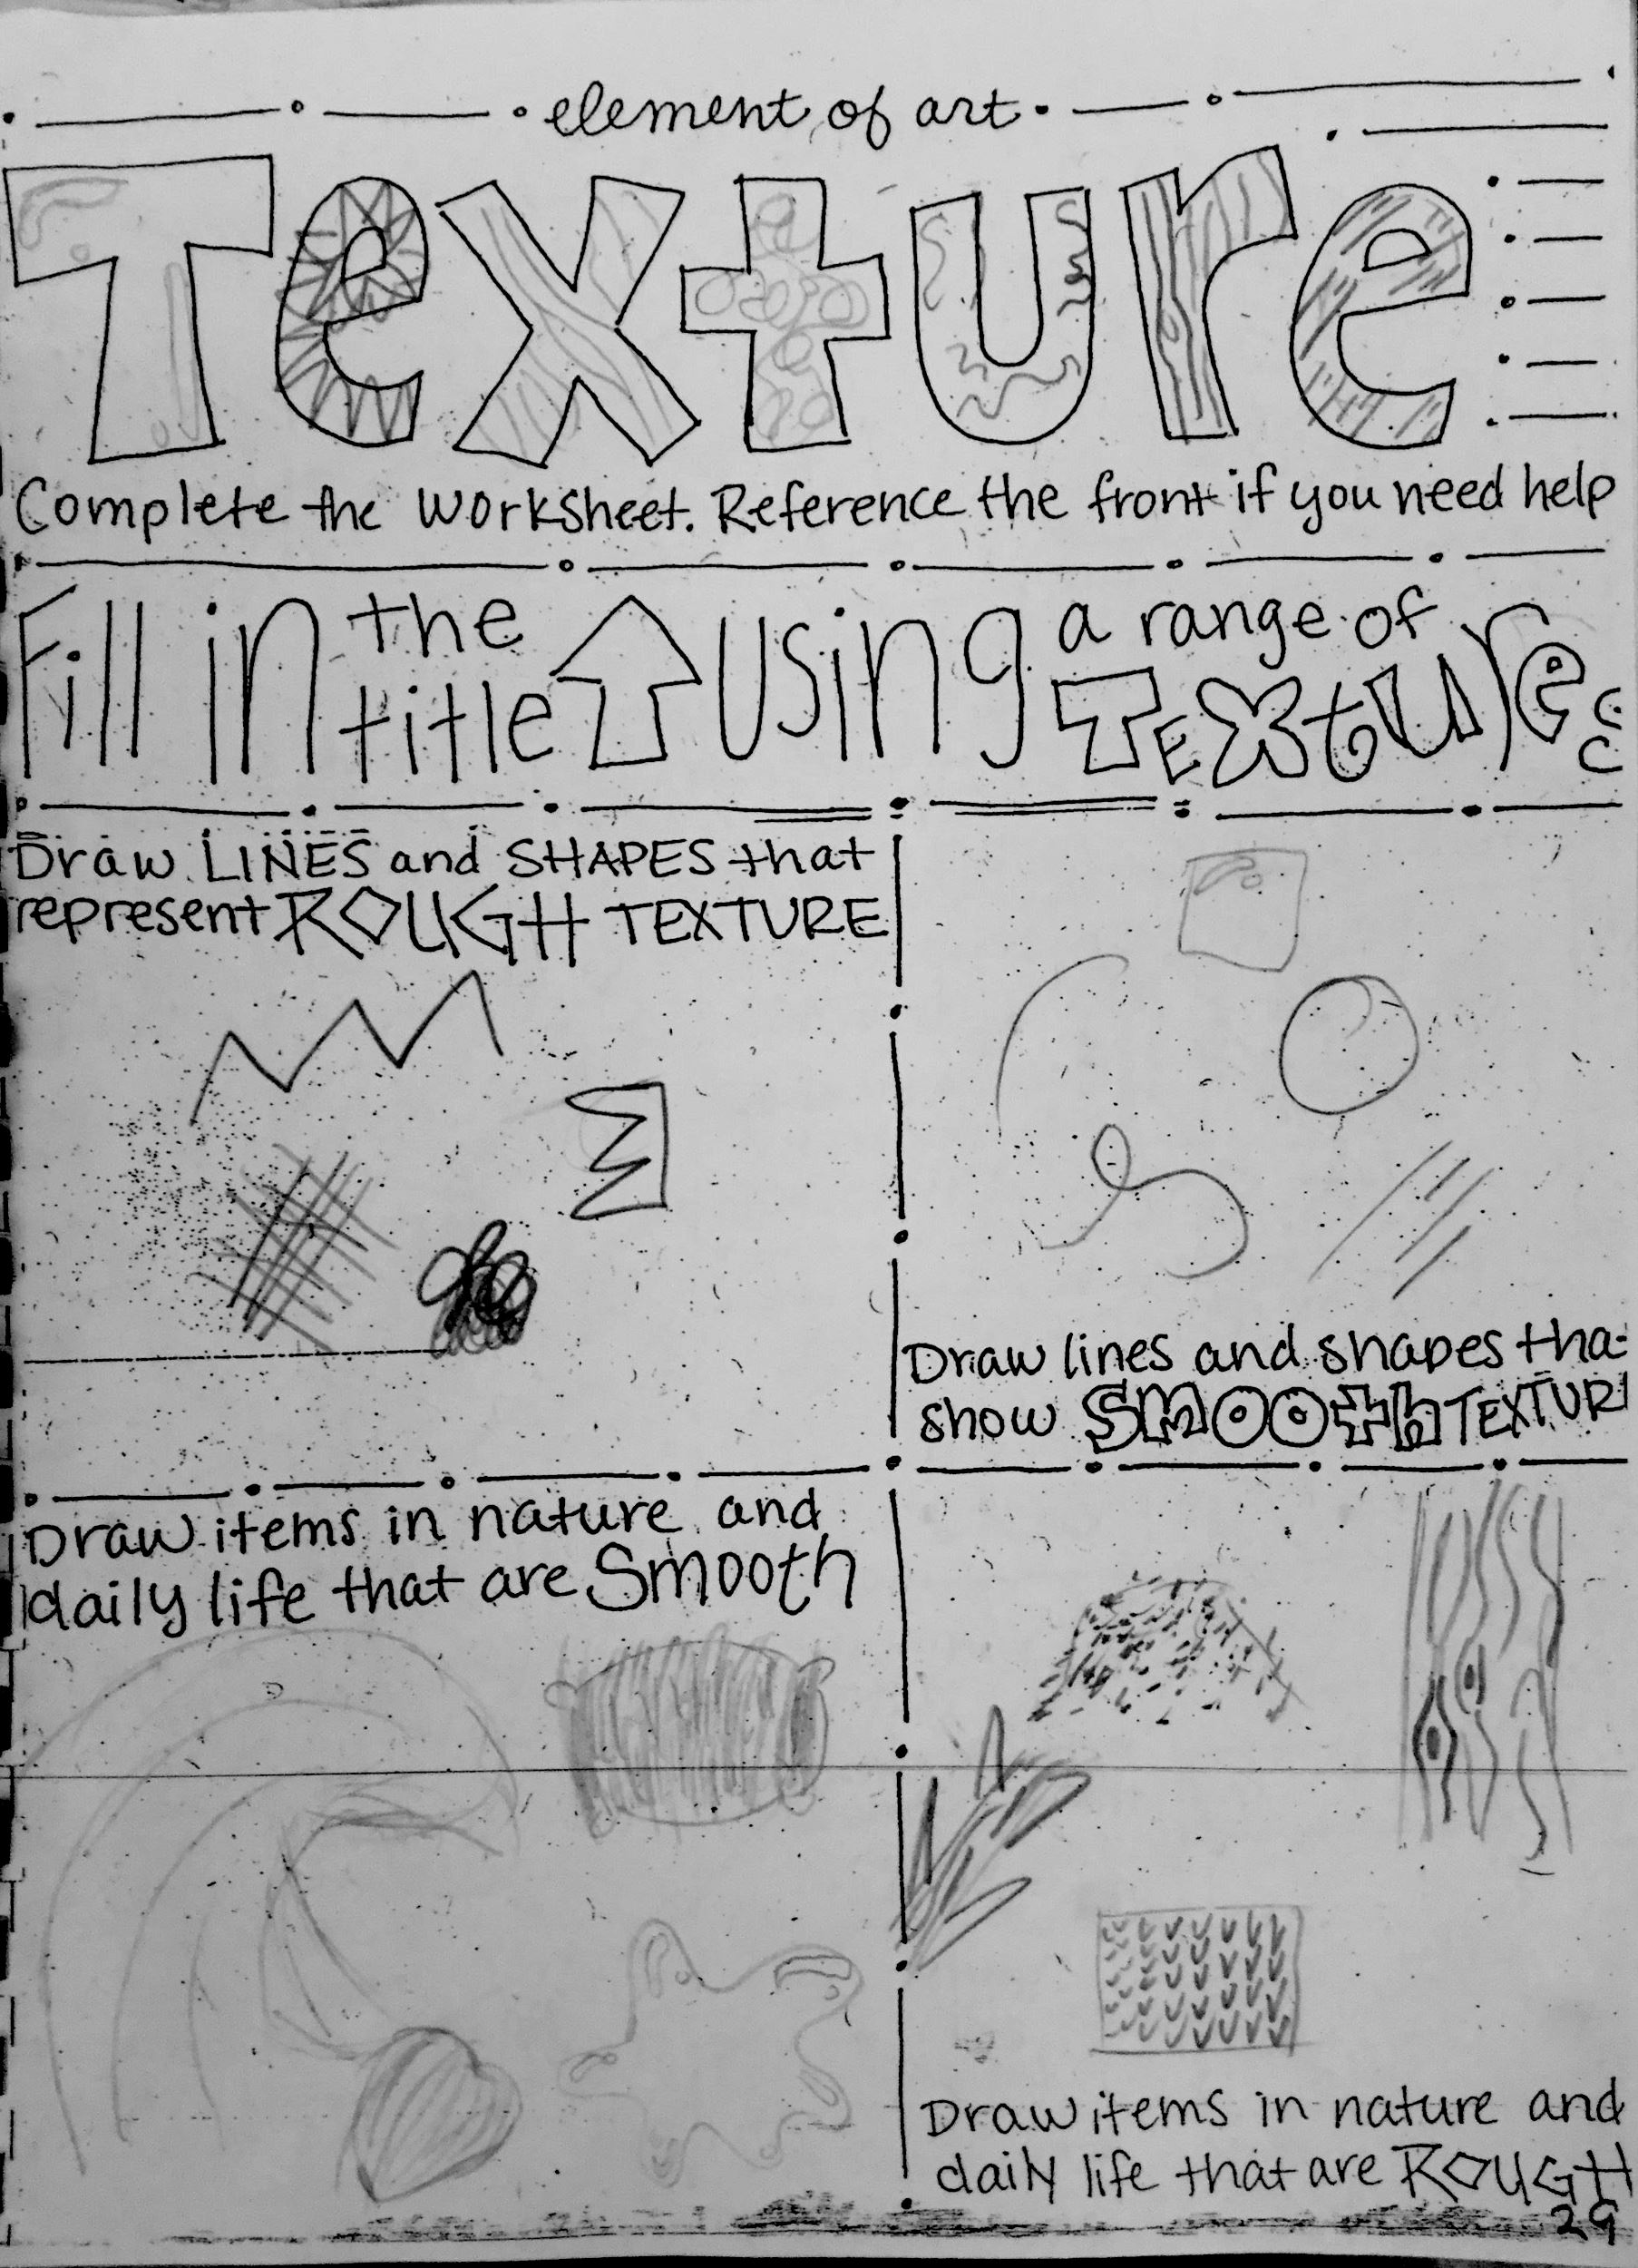 element of art
Texture
Complete the worksheet. Reference the front if you need help
Fill in the title using a range of TExtures
Draw LINES and SHAPES that
represent ROUGH TEXTURE
Draw lines and shapes tha
show SMOOth TEXTUR
Draw items in nature and
daily life that are Smooth
Draw items in nature and
daily life that are ROUGH
29